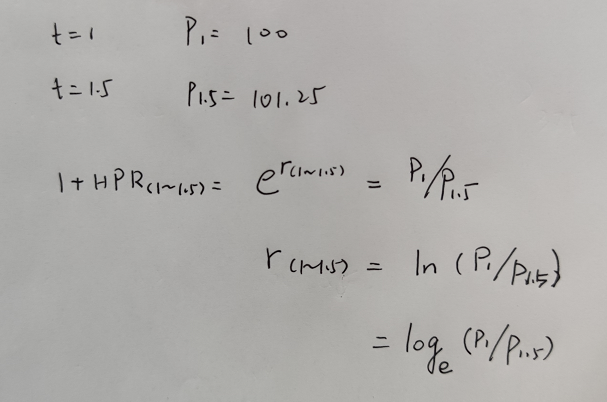 t=1 P₁= 100
t=1.5 P1.5= 101.25
1+HPR(1~1.5) = e^r(1~1.5) = P₁/P1.5
r(1~1.5) = ln (P₁/P1.5)
= logₑ (P₁/P1.5)